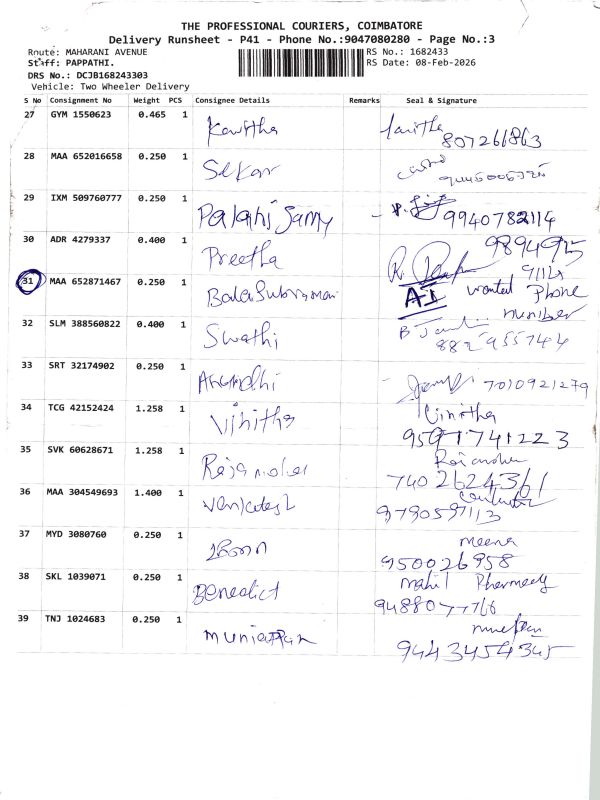 THE PROFESSIONAL COURIERS, COIMBATORE
Delivery Runsheet - P41 - Phone No.:9047080280 - Page No.:3
Route: MAHARANI AVENUE RS No.: 1682433
Staff: PAPPATHI. RS Date: 08-Feb-2026
DRS No.: DCJB168243303
Vehicle: Two Wheeler Delivery
S No Consignment No Weight PCS Consignee Details Remarks Seal & Signature
27 GYM 1550623 0.465 1 Kavitha
807266863
28 MAA 652016658 0.250 1 Sekar
29 IXM 509760777 0.250 1 Palanisamy 9940782114
30 ADR 4279337 0.400 1 Preetha 9894975
91121
31 MAA 652871467 0.250 1 Balasubraman AI wanted Phone
number
32 SLM 388560822 0.400 1 Swathi
8829955744
33 SRT 32174902 0.250 1 7010921279
34 TCG 42152424 1.258 1 Vinitha Vinitha
9597741223
35 SVK 60628671 1.258 1 Rajamohan
7402624361
36 MAA 304549693 1.400 1 Venkatesh
9790597113
37 MYD 3080760 0.250 1 meena
950026958
38 SKL 1039071 0.250 1 Benedict Mahil Pharmacy
9488077766
39 TNJ 1024683 0.250 1 Muniappan
9443454345